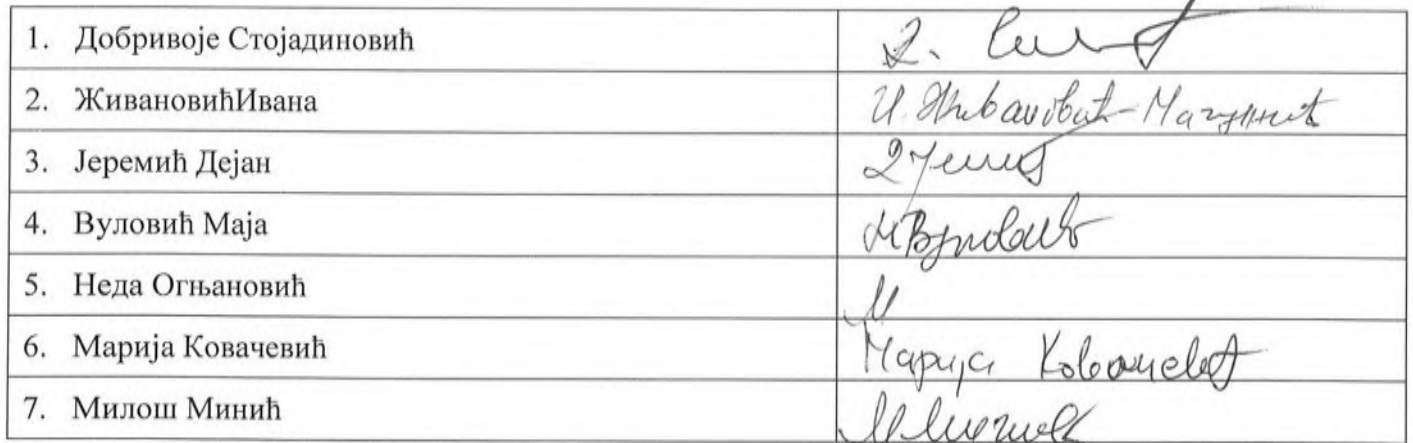 1. Добривоје Стојадиновић
2. ЖивановићИвана И. Живановић-Магдинић
3. Јеремић Дејан
4. Вуловић Маја МВуловић
5. Неда Огњановић
6. Марија Ковачевић Марија Ковачевић
7. Милош Минић